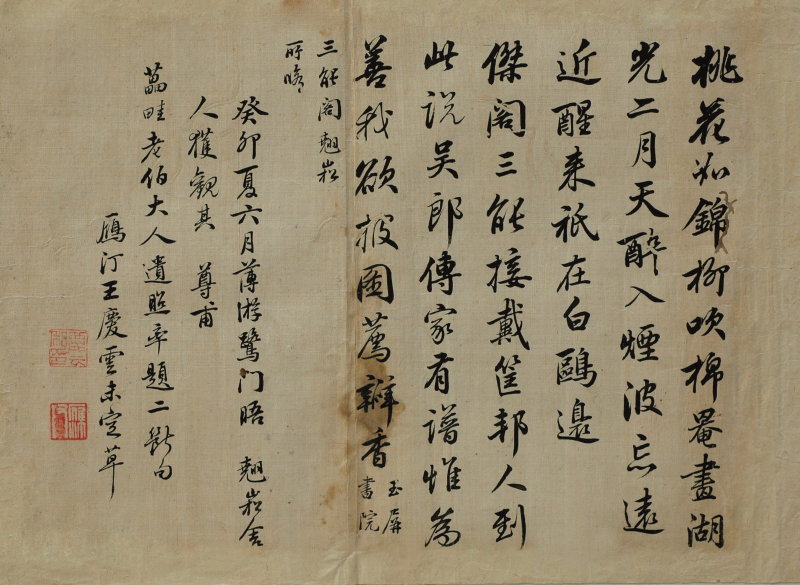 桃花如錦柳吹棉罨畫湖
光二月天醉入煙波忘遠
近醒來祇在白鷗邊
傑閣三能接戴筐邦人到
此說吳郎傳家有譜惟為
善我欲投園薦瓣香
玉屏
書院
三能閣翹崧
所瞻
癸卯夏六月薄游鷺門晤 翹崧舍
人獲觀其 尊甫
菖畦老伯大人遺照率題二斷句
鴈汀王慶雲未定草